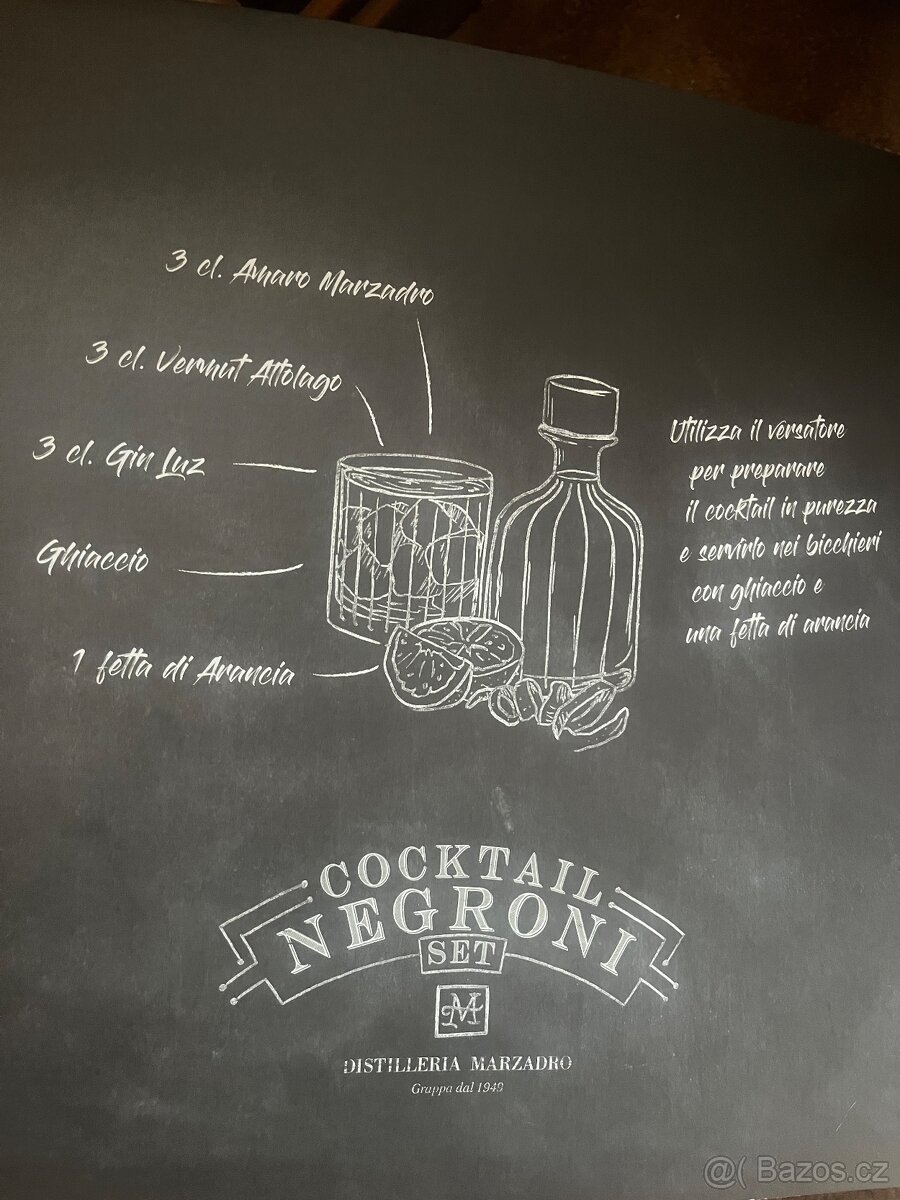 3 cl. Amaro Marzadro
3 cl. Vermut Altolago
3 cl. Gin Luz
Ghiaccio
1 fetta di Arancia
Utilizza il versatore
per preparare
il cocktail in purezza
e servirlo nei bicchieri
con ghiaccio e
una fetta di arancia
COCKTAIL
NEGRONI
SET
M
DISTILLERIA MARZADRO
Grappa dal 1949
@( Bazos.cz